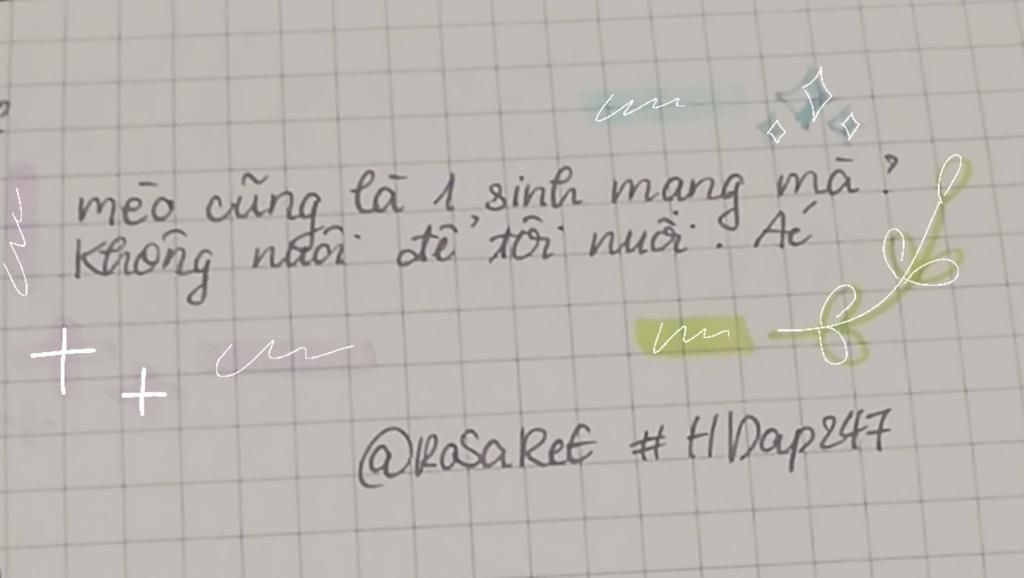 mèo cũng là 1 sinh mạng mà?
Không nuôi để tôi nuôi. Ác
@RosaRet #HDap247